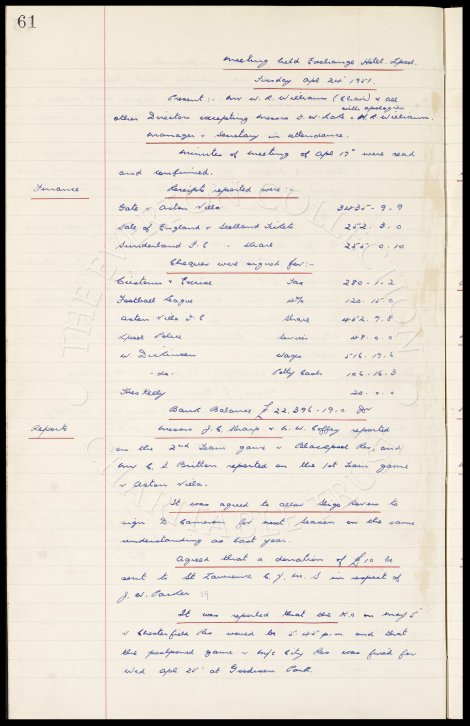 61
Meeting held Exchange Hotel. Lpool.
Tuesday Apl 24th 1951.
Present :- Mr W. R. Williams (Chair) & all
with apologies
other Directors excepting Messrs D. W. Late & H. R. Williams.
Manager & Secretary in attendance.
Minutes of meeting of Apl 17th were read
and confirmed.
Finance
Receipts reported were :-
Gate v Aston Villa 3435 - 9 . 9
Sale of England v Scotland Tickets 252 . 3 . 0
Sunderland F.C. Share 255 . 0 . 10
Cheques were signed for :-
Customs & Excise Tax 280 - 1 . 2
Football League 4% 120 . 15 . 0
Aston Villa F.C Share 452 . 9 . 8
Lpool Police Services 48 . 0 . 0
W. Dickinson Wages 516 . 19 . 6
- do - Petty Cash 106 . 16 . 3
Thos Kelly 20 . 0 . 0
Bank Balance £22,396 - 19 . 0
Reports
Messrs J. C. Sharp & A. W. Coffey reported
on the 2nd Team game v Blackpool Res, and
Mr C. S. Britton reported on the 1st Team game
v Aston Villa.
It was agreed to allow Sligo Rovers to
sign D. Cameron for next season on the same
understanding as last year.
Agreed that a donation of £10 be
sent to St Lawrence C. Y. M. S in respect of
J. W. Parker
It was reported that the K.O on May 5th
v Chesterfield Res would be 5.45 p.m and that
the postponed game v M/c City Res was fixed for
Wed Apl 25th at Goodison Park.